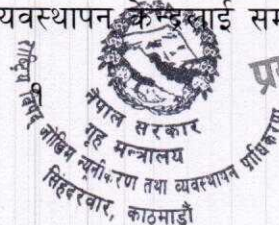 यवस्थापन केन्द्रलाई सम
१
नेपाल सरकार
गृह मन्त्रालय
राष्ट्रिय विपद् जोखिम न्यूनीकरण तथा व्यवस्थापन प्राधिकरण
सिंहदरवार, काठमाडौं